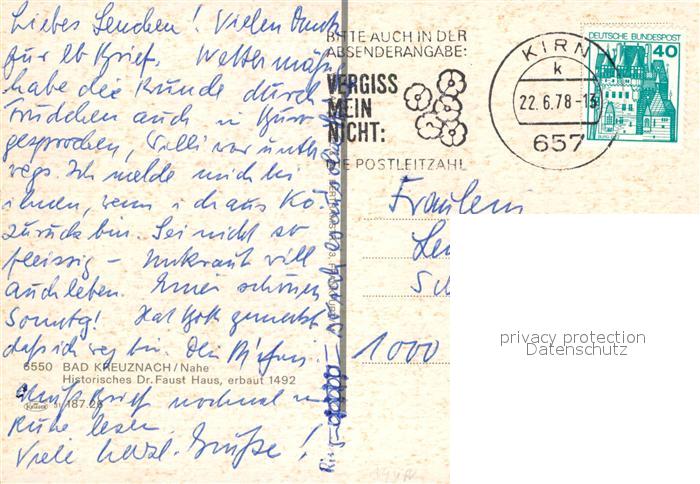 Liebes Lenchen! Vielen Dank
für lb Brief.
habe die Runde durch
Trudchen auch in
gesprochen, Willi war unter
wegs. Ich melde mich bei
ihnen, wenn ich aus Kö.
zurück bin. Sei nicht so
fleissig - Unkraut will
auch leben. Einen schönen
Sonntag! Hat
daß ich weg bin. Dein
6550 BAD KREUZNACH/Nahe
Historisches Dr. Faust Haus, erbaut 1492
Krüger
187.26
Muß Brief nochmal in
Ruhe lesen.
Viele herzl. Grüße!
BITTE AUCH IN DER
ABSENDERANGABE:
VERGISS
MEIN
NICHT:
DIE POSTLEITZAHL
KIRN
k
22.6.78-13
657
DEUTSCHE BUNDESPOST
40
Fräulein
1000
privacy protection
Datenschutz